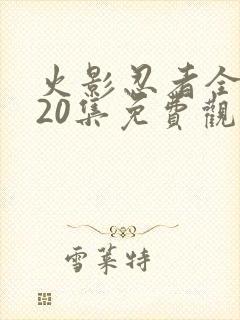 火影忍者全
20集免費觀
雪莱特